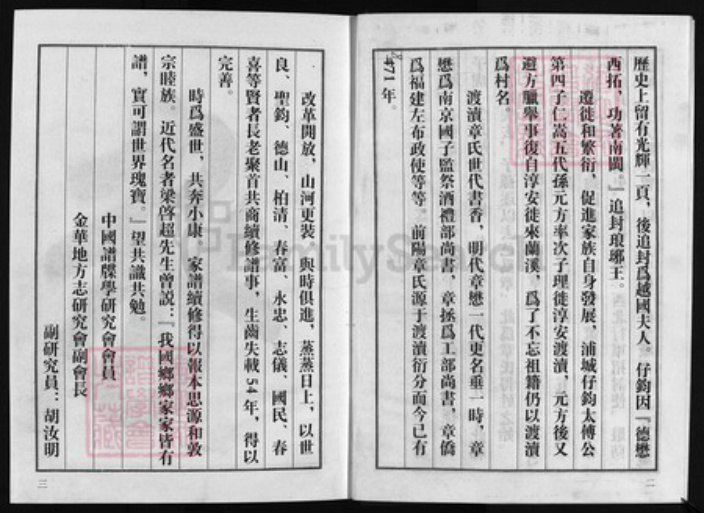 歷史上留有光輝一頁，後追封爲越國夫人。仔鈞因『德懋
西拓，功著南閩。』追封琅琊王。
遷徙和繁衍，促進家族自身發展，浦城仔鈞太傅公
第四子仁嵩五代孫元方率次子理徙淳安渡瀆，元方後又
避方臘舉事復自淳安徙來蘭溪，爲了不忘祖籍仍以渡瀆
爲村名
渡瀆章氏世代書香，明代章懋一代更名垂一時，章
懋爲南京國子監祭酒禮部尚書，章拯爲工部尚書，章僑
爲福建左布政使等等，前陽章氏源于渡瀆衍分而今已有
471年。
改革開放，山河更装，與時俱進，蒸蒸日上，以世
良、聖鈞、德山、柏清、春富、永忠、志儀、國民、春
喜等賢者長老聚首共商續修譜事，生齒失載54年，得以
完善。
時爲盛世，共奔小康，家譜續修得以報本思源和敦
宗睦族。近代名者梁啓超先生曾説：『我國鄉鄉家家皆有
譜，實可謂世界瑰寶。』望共識共勉。
中國譜牒學研究會會員
金華地方志研究會副會長
副研究員：胡汝明
二
三
FamilySearch